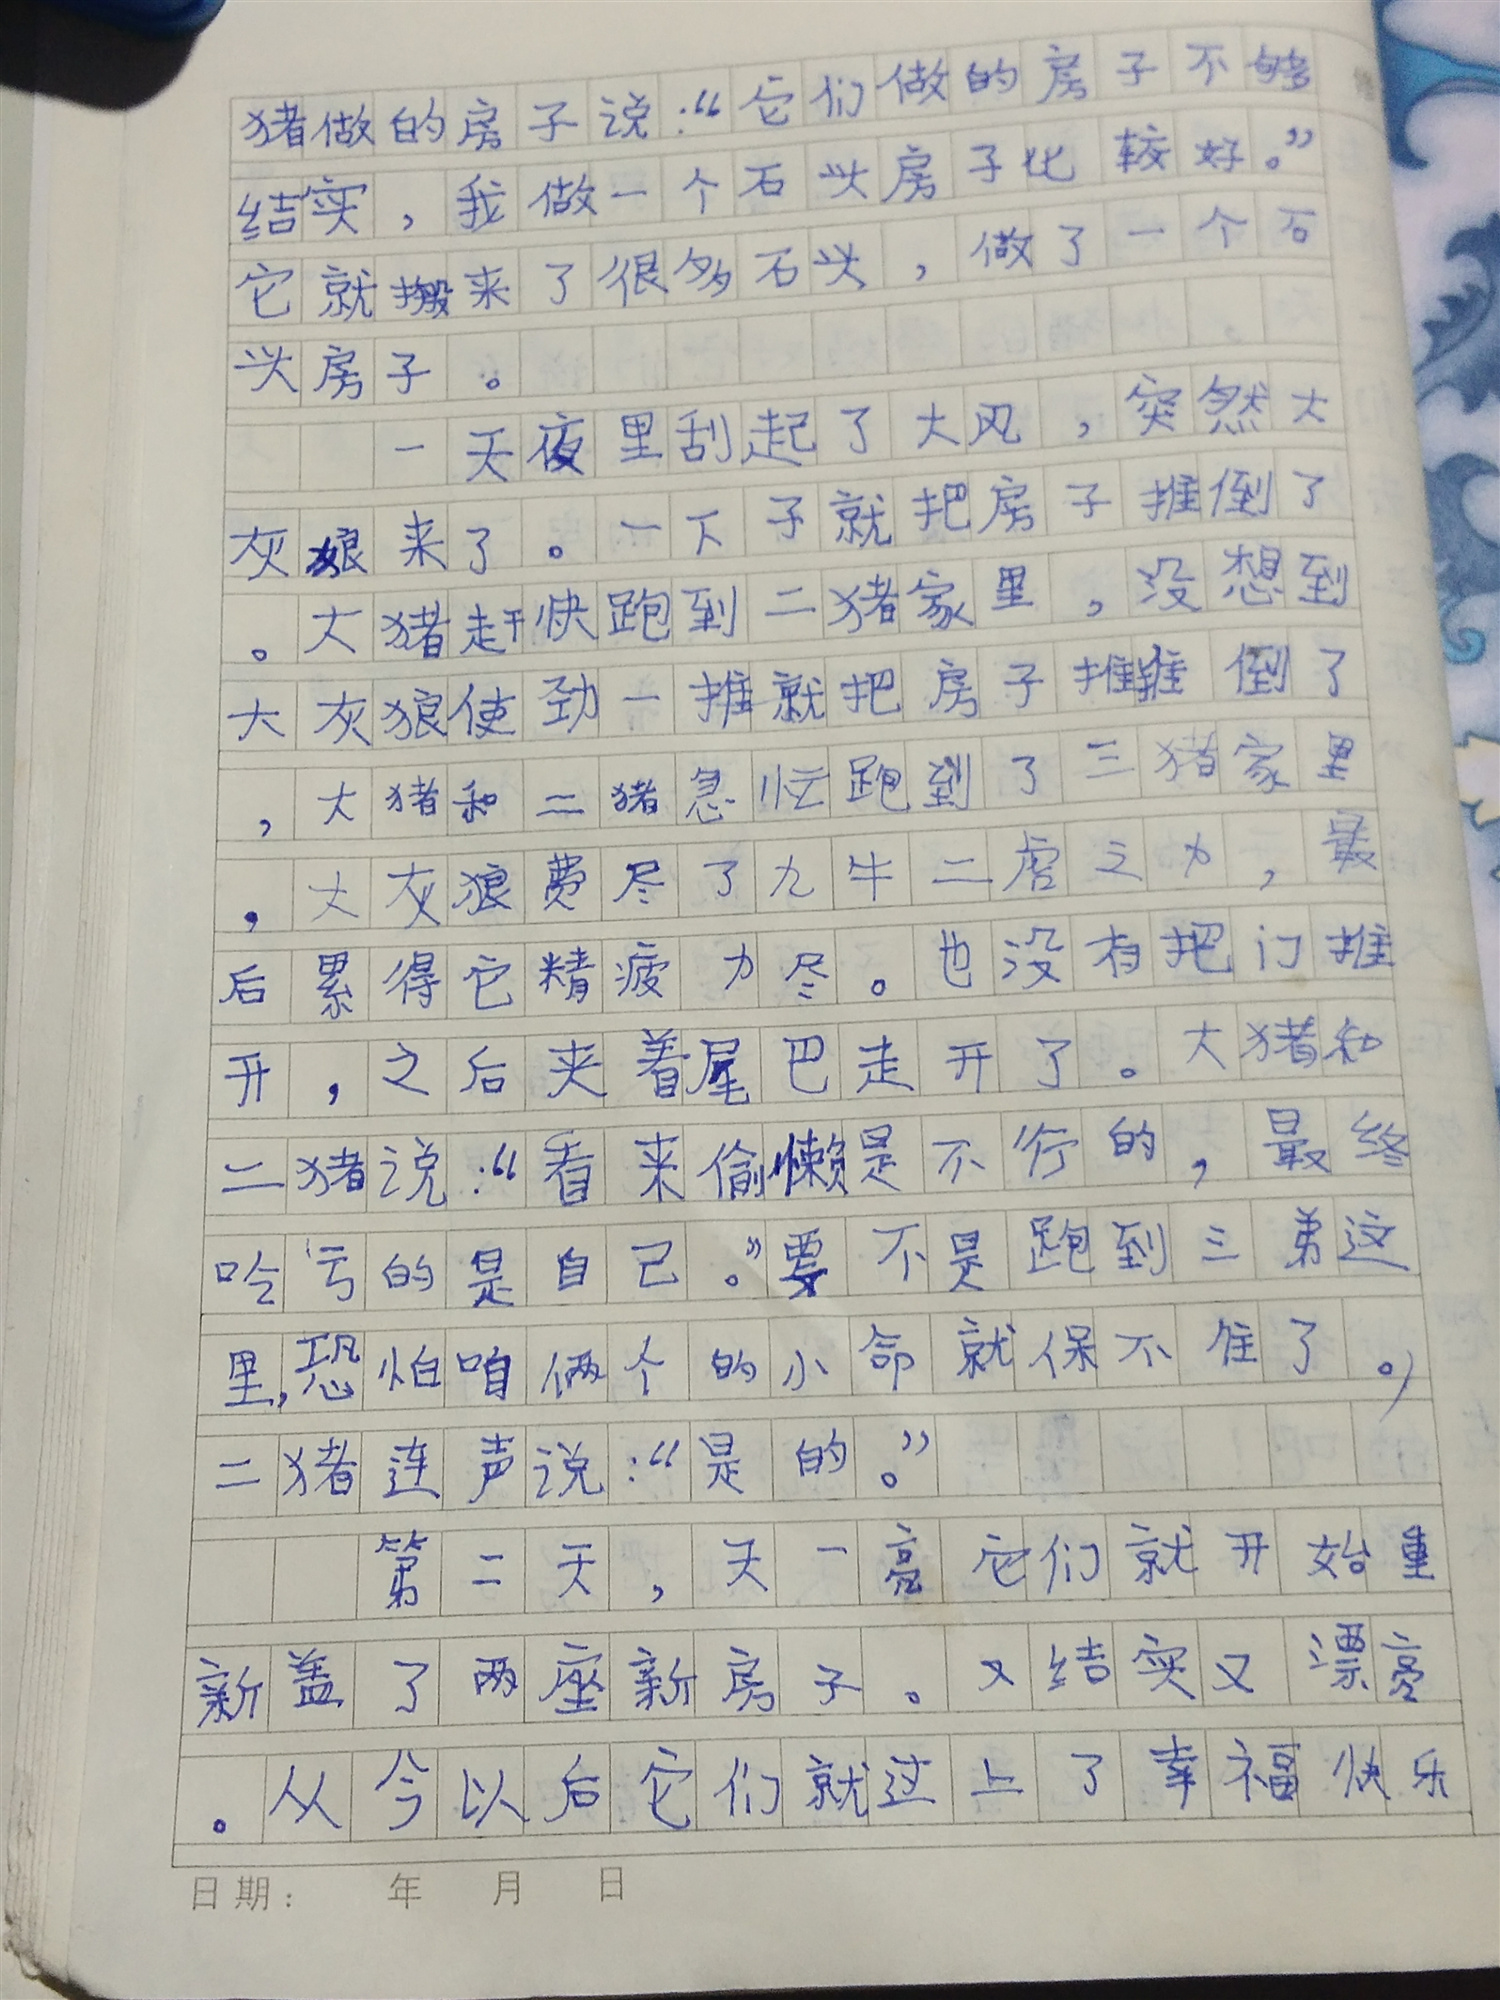 猪做的房子说：“它们做的房子不够
结实，我做一个石头房子比较好。”
它就搬来了很多石头，做了一个石
头房子。
一天夜里刮起了大风，突然大
灰狼来了。一下子就把房子推倒了
。大猪赶快跑到二猪家里，没想到
大灰狼使劲一推就把房子推推倒了
，大猪和二猪急忙跑到了三猪家里
，大灰狼费尽了九牛二虎之力，最
后累得它精疲力尽。也没有把门推
开，之后夹着尾巴走开了。大猪和
二猪说：“看来偷懒是不行的，最终
吃亏的是自己。”要不是跑到三弟这
里，恐怕咱俩个的小命就保不住了。）
二猪连声说：“是的。”
第二天，天一亮它们就开始重
新盖了两座新房子。又结实又漂亮
。从今以后它们就过上了幸福快乐
日期： 年 月 日